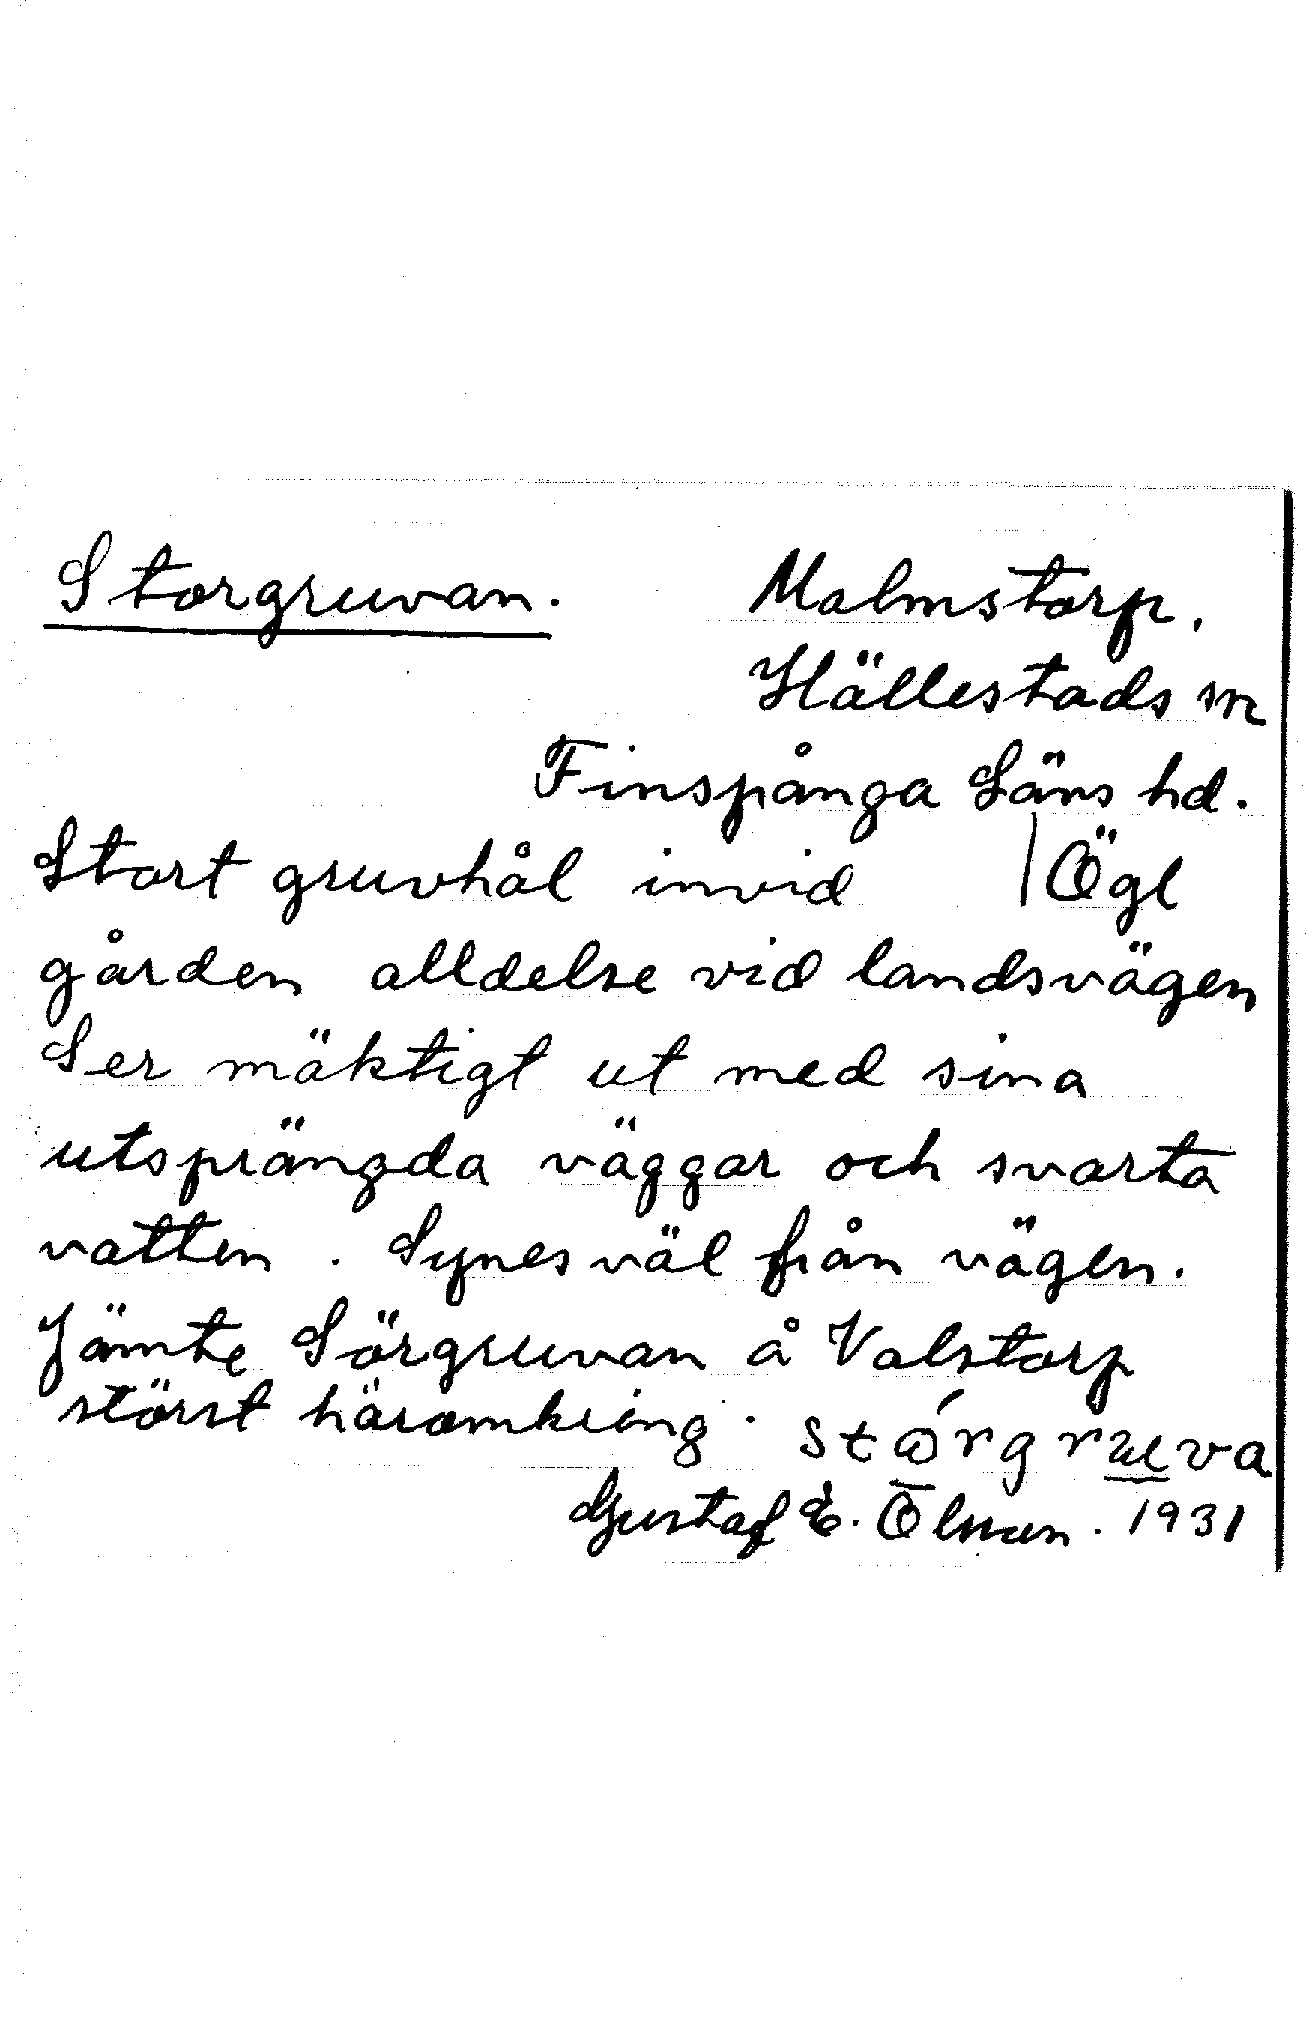 Storgruvan. Malmstorp,
Hällestads sn
Finspånga Läns hd.
Stort gruvhål invid | Ögl
gården alldelse vid landsvägen
Ser mäktigt ut med sina
utsprängda väggar och svarta
vatten. Synes väl från vägen.
Jämte Sörgruvan å Valstorp
störst häromkring.
Gustaf E. Ölman. 1931